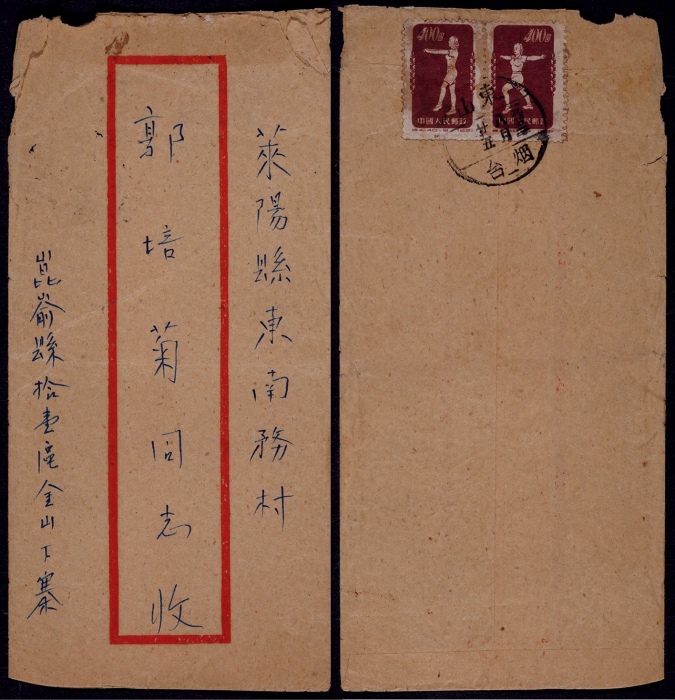 萊陽縣東南務村
郭培菊同志收
崑嵛縣拾壹區金山下寨
400圓
中國人民郵政
400圓
中國人民郵政
山東
烟台